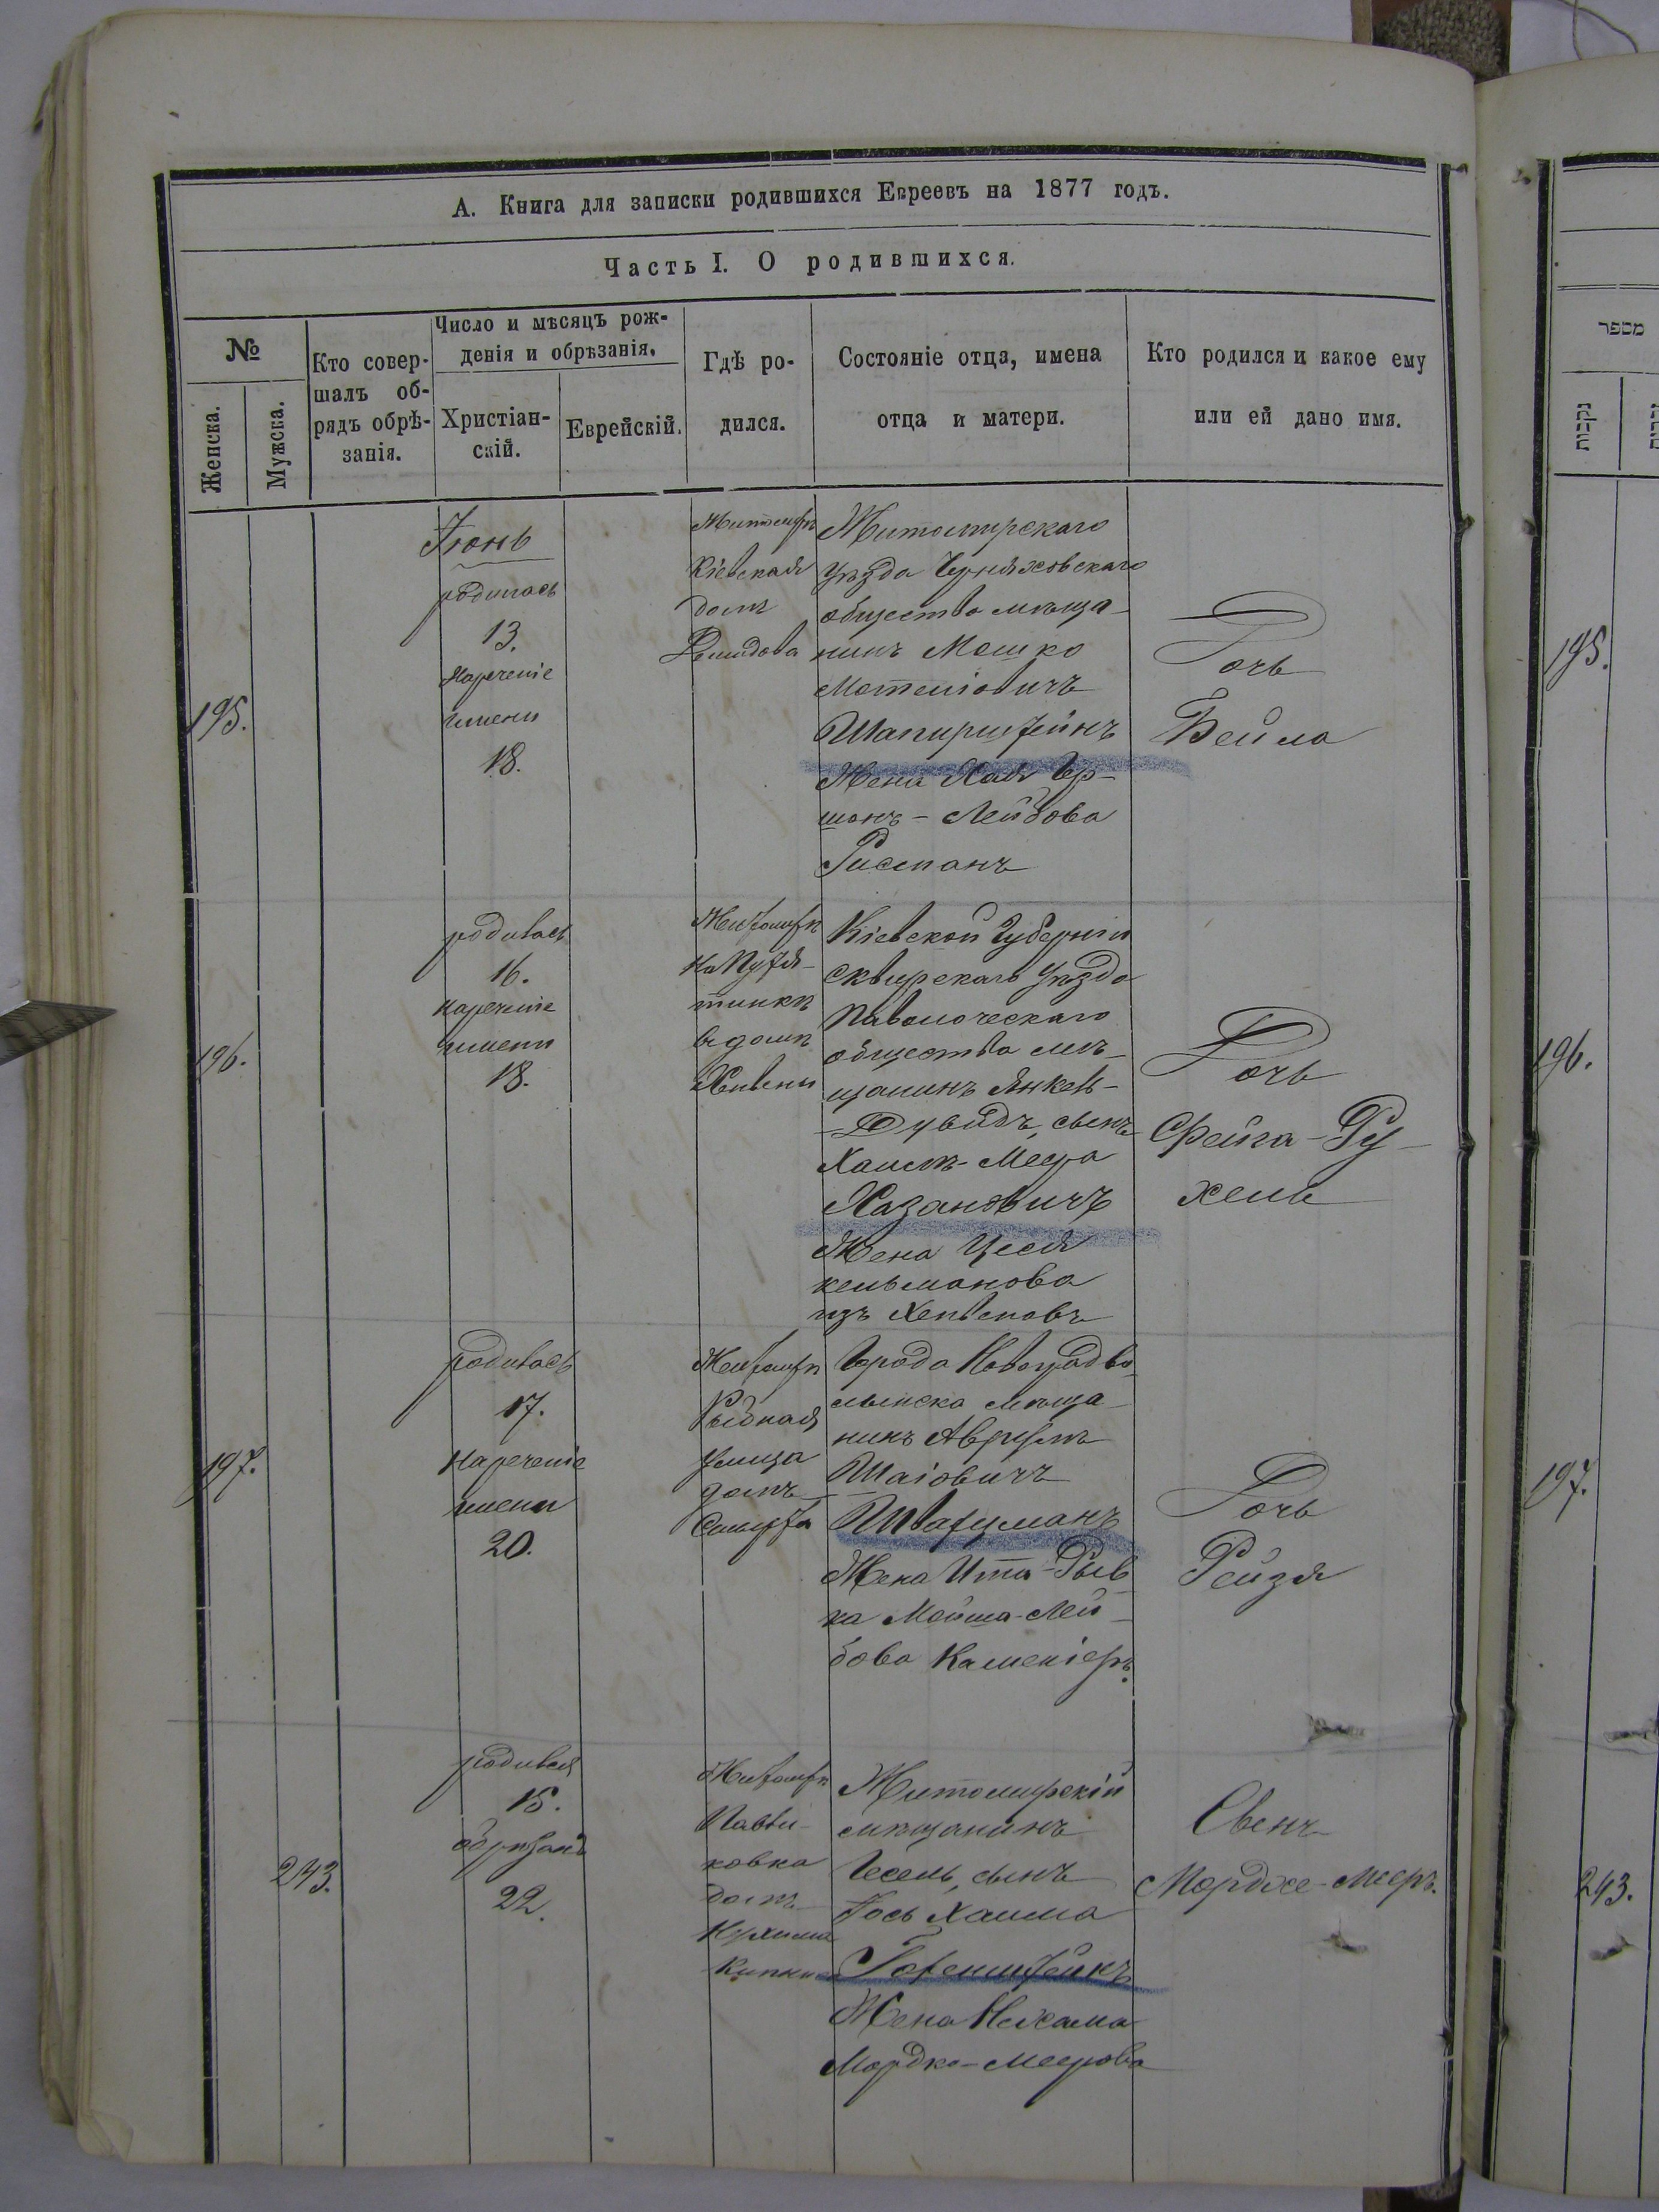 А. Книга для записки родившихся Евреевъ на 1877 годъ.
Часть I. О родившихся.
№
Женска.
Мужска.
Кто совер-
шалъ об-
рядъ обрѣ-
занія.
Число и мѣсяцъ рож-
денія и обрѣзанія.
Христіан-
скій.
Еврейскій.
Гдѣ ро-
дился.
Состояніе отца, имена
отца и матери.
Кто родился и какое ему
или ей дано имя.
מספר
נקבות
195.
Іюнь
родилась
13.
Нареченіе
имени
18.
Житомiръ
Кіевская
домъ
Житомирскаго
уѣзда Черняховскаго
общества мѣща-
нинъ Мошко
Мотеліовичъ
Шапирштейнъ
Жена Хая Гер-
шонъ-Лейбова
Рисманъ
Дочь
Бейла
195.
196.
родилась
16.
нареченіе
имени
18.
Житомiръ
на Путя-
тинкѣ
въ домѣ
Кіевской Губерніи
Сквирскаго уѣзда
Паволочскаго
общества мѣ-
щанинъ Янкель-
-Дувидъ, сынъ
Хаимъ-Меера
Хазановичъ
Жена Цеся
кельманова
изъ
Дочь
Фейга-Ру-
хель
196.
197.
родилась
17.
нареченіе
имени
20.
Рыбная
улица
домъ
Города Новоградво-
лынска мѣща-
нинъ Аврумъ
Шаіовичъ
Шварцманъ
Жена Ита-Рыв-
ка Мойша-Лей-
бова
Дочь
Рейзя
197.
243.
родился
15.
обрѣзанъ
22.
Павли-
ковка
домъ
Житомирскій
мѣщанинъ
сынъ
Іось Хаима
Гореништейнъ
Жена Нехама
Мордко-Меерова
Сынъ
Мордхе-Мееръ.
243.